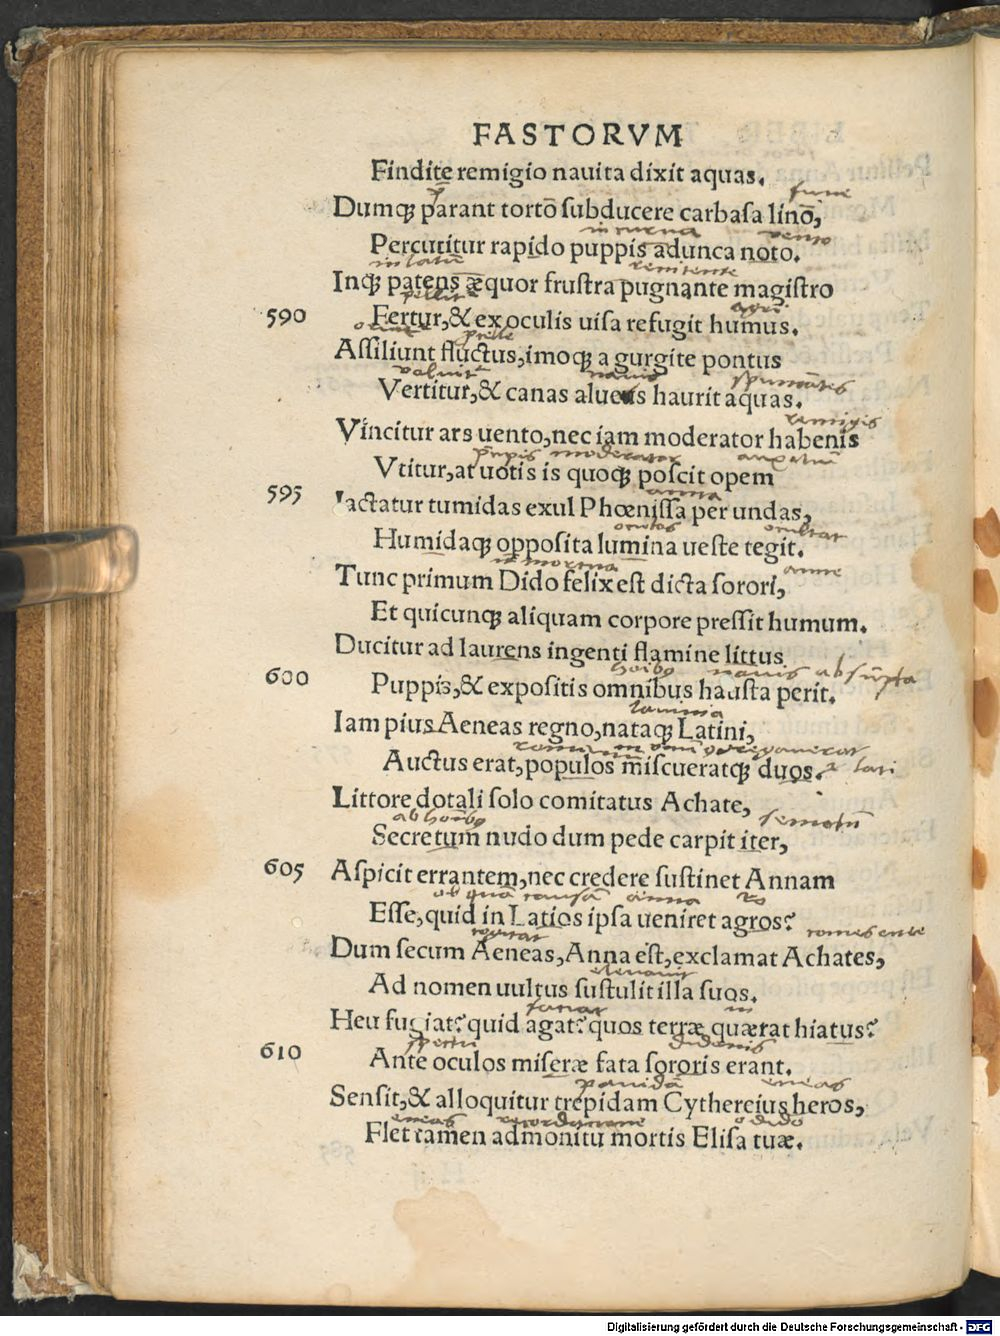 FASTORVM
Findite remigio nauita dixit aquas.
fune
Dumqȝ parant tortō subducere carbasa linō,
uento
Percutitur rapido puppis adunca noto.
in latū renitente
Inqȝ patens æquor frustra pugnante magistro
pellit
590 Fertur,& ex oculis uisa refugit humus.
Assiliunt fluctus,imoqȝ a gurgite pontus
nauis
Vertitur,& canas alueus haurit aquas.
remigis
Vincitur ars uento,nec iam moderator habenis
moderator
Vtitur,at uotis is quoqȝ poscit opem
anna
595 Iactatur tumidas exul Phœnissa per undas,
oculos
Humidaqȝ opposita lumina ueste tegit.
anne
Tunc primum Dido felix est dicta sorori,
Et quicunqȝ aliquam corpore pressit humum.
Ducitur ad laurens ingenti flamine littus
hoībȝ nauis absūpta
600 Puppis,& expositis omnibus hausta perit.
lauinia
Iam pius Aeneas regno,nataqȝ Latini,
Auctus erat,populos miscueratqȝ duos.
Littore dotali solo comitatus Achate,
ab hoībȝ semotū
Secretum nudo dum pede carpit iter,
605 Aspicit errantem,nec credere sustinet Annam
ob quā causā anna
Esse,quid in Latios ipsa ueniret agros?
cogitat
Dum secum Aeneas,Anna est,exclamat Achates,
eleuauit
Ad nomen uultus sustulit illa suos.
faciat in
Heu fugiat? quid agat? quos terræ quærat hiatus?
didonis
610 Ante oculos miseræ fata sororis erant.
pauidā eneas
Sensit,& alloquitur trepidam Cythereius heros,
eneas o dido
Flet tamen admonitu mortis Elisa tuæ.
Digitalisierung gefördert durch die Deutsche Forschungsgemeinschaft - DFG